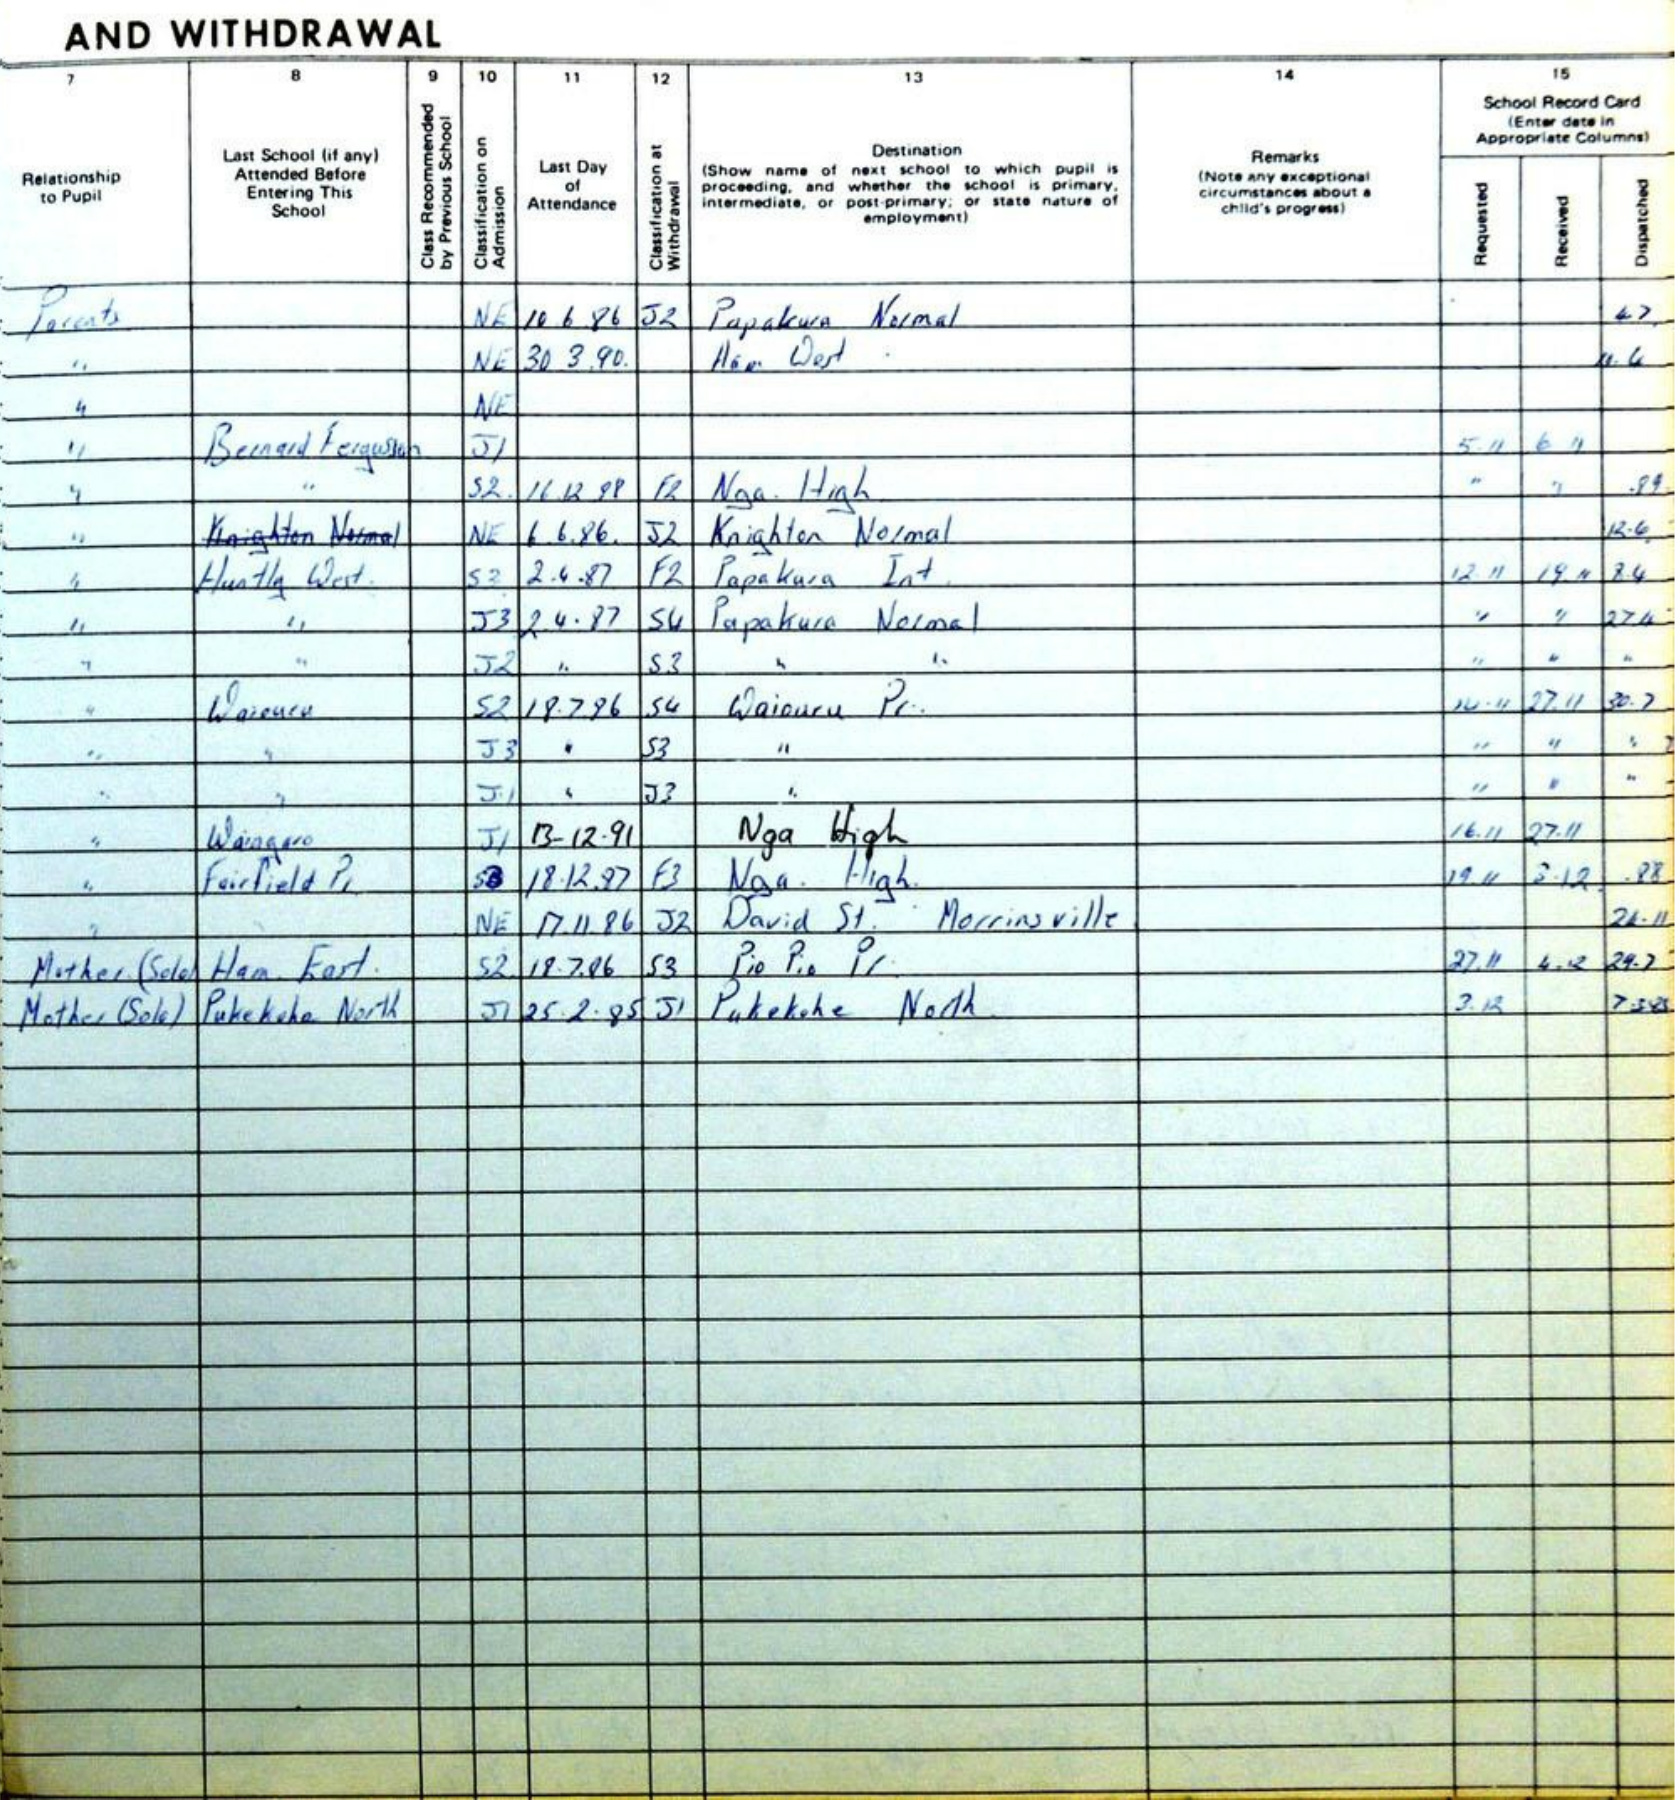 AND WITHDRAWAL
7 8 9 10 11 12 13 14 15
Relationship to Pupil
Last School (if any) Attended Before Entering This School
Class Recommended by Previous School
Classification on Admission
Last Day of Attendance
Classification at Withdrawal
Destination
(Show name of next school to which pupil is proceeding, and whether the school is primary, intermediate, or post-primary; or state nature of employment)
Remarks
(Note any exceptional circumstances about a child's progress)
School Record Card
(Enter date in Appropriate Columns)
Requested Received Dispatched
Parents NE 10.6.86 J2 Papakura Normal 4.7
" NE 30.3.90. Ham West
" NE
" Bernard Fergusson J1 5.11 6.11
" " S2. 16.12.88 F2 Nga. High " " .89
" Knighton Normal NE 6.6.86. J2 Knighton Normal 12.6
" Huntly West. S3 2.4.87 F2 Papakura Int. 12.11 19.11 8.4
" " J3 2.4.87 S4 Papakura Normal " " 27.4
" " J2 " S3 " " " " "
" Waiouru S2 18.7.86 S4 Waiouru Pr. 27.11 30.7
" " J3 " S3 " " " "
" " J1 " J3 " " " "
" Waingaro J1 13-12-91 Nga High 16.11 27.11
" Fairfield Pr. 18.12.87 F3 Nga. High. 19.11 3.12 .88
" NE 17.11.86 J2 David St. Morrinsville 24.11
Mother (Solo) Ham. East. S2 18.7.86 S3 Pio Pio Pr. 27.11 4.12 29.7
Mother (Solo) Pukekohe North J1 25.2.85 J1 Pukekohe North 3.12 7.3.85